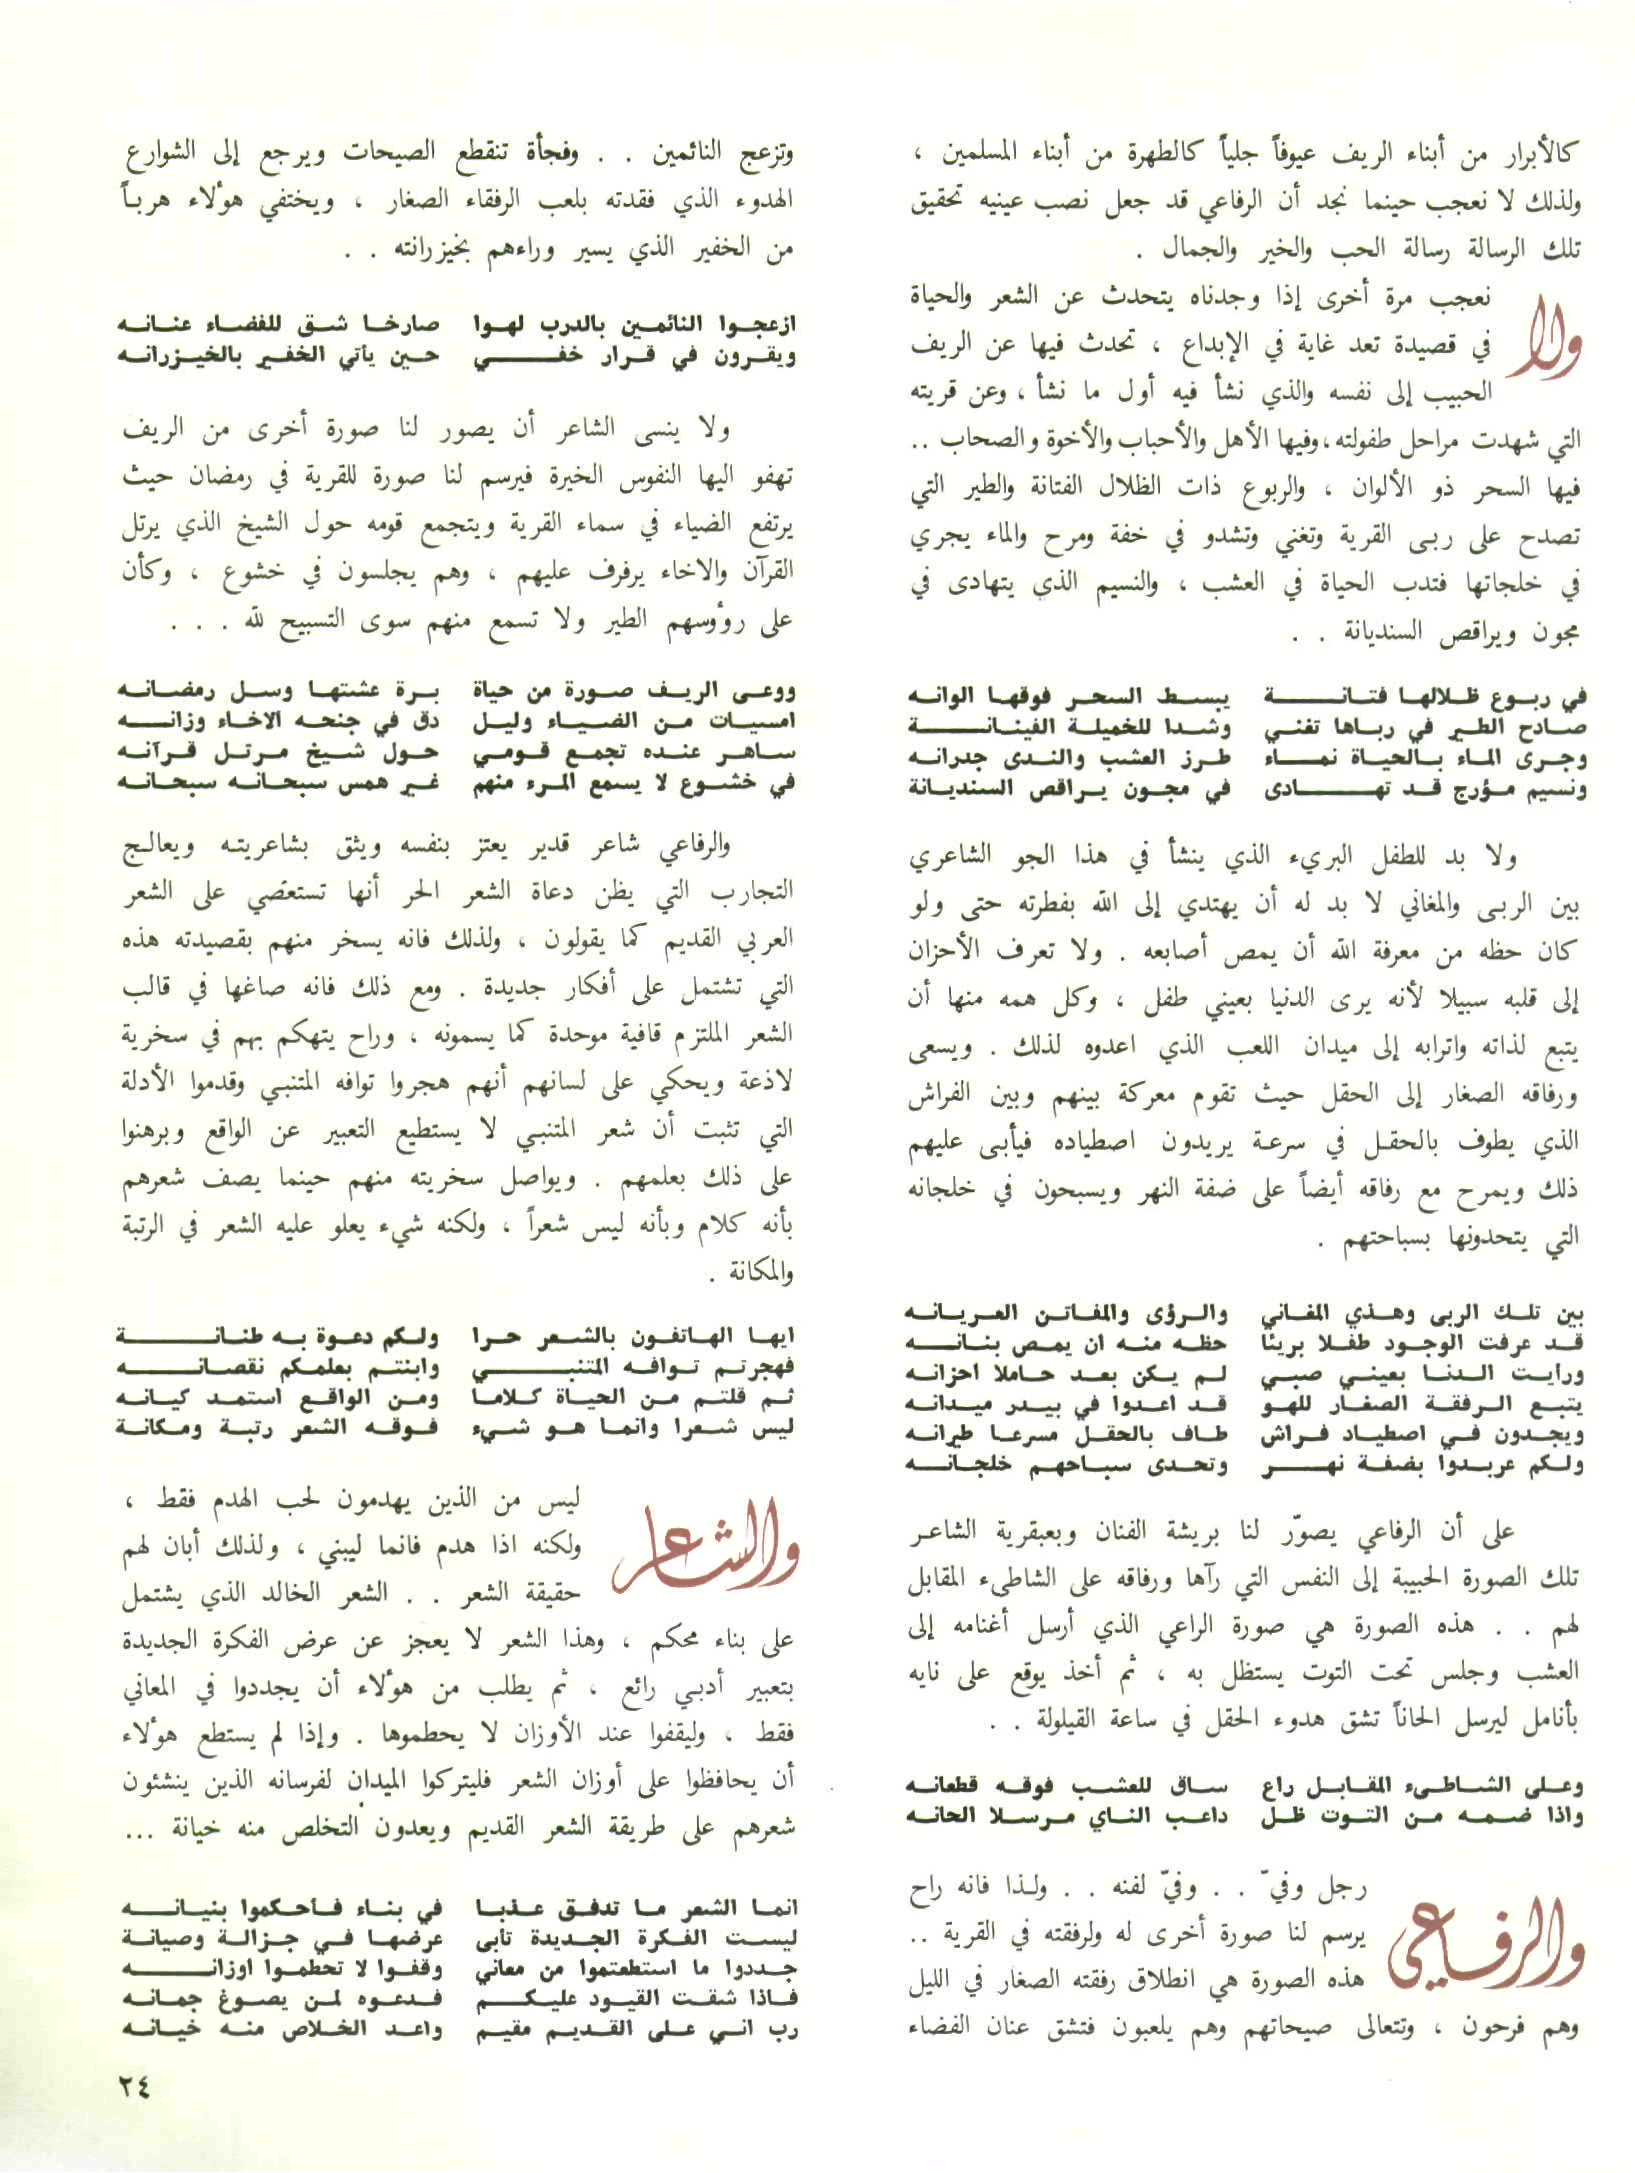 كالأبرار من أبناء الريف عيوفاً جلياً كالطهرة من أبناء المسلمين ،
ولذلك لا نعجب حينما نجد أن الرفاعي قد جعل نصب عينيه تحقيق
تلك الرسالة رسالة الحب والخير والجمال .
ولا نعجب مرة أخرى إذا وجدناه يتحدث عن الشعر والحياة
في قصيدة تعد غاية في الإبداع ، تحدث فيها عن الريف
الحبيب إلى نفسه والذي نشأ فيه أول ما نشأ ، وعن قريته
التي شهدت مراحل طفولته ، وفيها الأهل والأحباب والأخوة والصحاب ..
فيها السحر ذو الألوان ، والربوع ذات الظلال الفتانة والطير التي
تصدح على ربى القرية وتغني وتشدو في خفة ومرح والماء يجري
في خلجاتها فتدب الحياة في العشب ، والنسيم الذي يتهادى في
مجون ويراقص السنديانة . .
في ربوع ظلالها فتانة يبسط السحر فوقها الوانه
صادح الطير في رباها تغني وشدا للخميلة الفينانة
وجرى الماء بالحياة نماء طرز العشب والندى جدرانه
ونسيم مؤرج قد تهادى في مجون يراقص السنديانة
ولا بد للطفل البريء الذي ينشأ في هذا الجو الشاعري
بين الربى والمغاني لا بد له أن يهتدي إلى الله بفطرته حتى ولو
كان حظه من معرفة الله أن يمص أصابعه . ولا تعرف الأحزان
إلى قلبه سبيلا لأنه يرى الدنيا بعيني طفل ، وكل همه منها أن
يتبع لذاته واترابه إلى ميدان اللعب الذي اعدوه لذلك . ويسعى
ورفاقه الصغار إلى الحقل حيث تقوم معركة بينهم وبين الفراش
الذي يطوف بالحقل في سرعة يريدون اصطياده فيأبى عليهم
ذلك ويمرح مع رفاقه أيضاً على ضفة النهر ويسبحون في خلجانه
التي يتحدونها بسباحتهم .
بين تلك الربى وهذي المغاني والرؤى والمفاتن العريانه
قد عرفت الوجود طفلا بريئا حظه منه ان يمص بنانه
ورايت الدنا بعيني صبي لم يكن بعد حاملا احزانه
يتبع الرفقة الصغار للهو قد اعدوا في بيدر ميدانه
ويجدون في اصطياد فراش طاف بالحقل مسرعا طيرانه
ولكم عربدوا بضفة نهر وتحدى سباحهم خلجانه
على أن الرفاعي يصوّر لنا بريشة الفنان وبعبقرية الشاعر
تلك الصورة الحبيبة إلى النفس التي رآها ورفاقه على الشاطىء المقابل
لهم . . هذه الصورة هي صورة الراعي الذي أرسل أغنامه إلى
العشب وجلس تحت التوت يستظل به ، ثم أخذ يوقع على نايه
بأنامل ليرسل الحاناً تشق هدوء الحقل في ساعة القيلولة . .
وعلى الشاطىء المقابل راع ساق للعشب فوقه قطعانه
واذا ضمه من التوت ظل داعب الناي مرسلا الحانه
والرفاعي رجل وفيّ . . وفيّ لفنه . . ولذا فانه راح
يرسم لنا صورة أخرى له ولرفقته في القرية ..
هذه الصورة هي انطلاق رفقته الصغار في الليل
وهم فرحون ، وتتعالى صيحاتهم وهم يلعبون فتشق عنان الفضاء
وتزعج النائمين . . وفجأة تنقطع الصيحات ويرجع إلى الشوارع
الهدوء الذي فقدته بلعب الرفقاء الصغار ، ويختفي هؤلاء هرباً
من الخفير الذي يسير وراءهم بخيزرانته . .
ازعجوا النائمين بالدرب لهوا صارخا شق للفضاء عنانه
ويقرون في قرار خفي حين ياتي الخفير بالخيزرانه
ولا ينسى الشاعر أن يصور لنا صورة أخرى من الريف
تهفو اليها النفوس الخيرة فيرسم لنا صورة للقرية في رمضان حيث
يرتفع الضياء في سماء القرية ويتجمع قومه حول الشيخ الذي يرتل
القرآن والاخاء يرفرف عليهم ، وهم يجلسون في خشوع ، وكأن
على رؤوسهم الطير ولا تسمع منهم سوى التسبيح لله . . .
ووعى الريف صورة من حياة برة عشتها وسل رمضانه
امسيات من الضياء وليل دق في جنحه الاخاء وزانه
ساهر عنده تجمع قومي حول شيخ مرتل قرآنه
في خشوع لا يسمع المرء منهم غير همس سبحانه سبحانه
والرفاعي شاعر قدير يعتز بنفسه ويثق بشاعريته ويعالج
التجارب التي يظن دعاة الشعر الحر أنها تستعصي على الشعر
العربي القديم كما يقولون ، ولذلك فانه يسخر منهم بقصيدته هذه
التي تشتمل على أفكار جديدة . ومع ذلك فانه صاغها في قالب
الشعر الملتزم قافية موحدة كما يسمونه ، وراح يتهكم بهم في سخرية
لاذعة ويحكي على لسانهم أنهم هجروا توافه المتنبي وقدموا الأدلة
التي تثبت أن شعر المتنبي لا يستطيع التعبير عن الواقع وبرهنوا
على ذلك بعلمهم . ويواصل سخريته منهم حينما يصف شعرهم
بأنه كلام وبأنه ليس شعراً ، ولكنه شيء يعلو عليه الشعر في الرتبة
والمكانة .
ايها الهاتفون بالشعر حرا ولكم دعوة به طنانة
فهجرتم توافه المتنبي وابنتم بعلمكم نقصانه
ثم قلتم من الحياة كلاما ومن الواقع استمد كيانه
ليس شعرا وانما هو شيء فوقه الشعر رتبة ومكانة
والشاعر ليس من الذين يهدمون لحب الهدم فقط ،
ولكنه اذا هدم فانما ليبني ، ولذلك أبان لهم
حقيقة الشعر . . الشعر الخالد الذي يشتمل
على بناء محكم ، وهذا الشعر لا يعجز عن عرض الفكرة الجديدة
بتعبير أدبي رائع ، ثم يطلب من هؤلاء أن يجددوا في المعاني
فقط ، وليقفوا عند الأوزان لا يحطموها . وإذا لم يستطع هؤلاء
أن يحافظوا على أوزان الشعر فليتركوا الميدان لفرسانه الذين ينشئون
شعرهم على طريقة الشعر القديم ويعدون التخلص منه خيانة ...
انما الشعر ما تدفق عذبا في بناء فاحكموا بنيانه
ليست الفكرة الجديدة تأبى عرضها في جزالة وصيانة
جددوا ما استطعتموا من معاني وقفوا لا تحطموا اوزانه
فاذا شقت القيود عليكم فدعوه لمن يصوغ جمانه
رب اني على القديم مقيم واعد الخلاص منه خيانه
٢٤